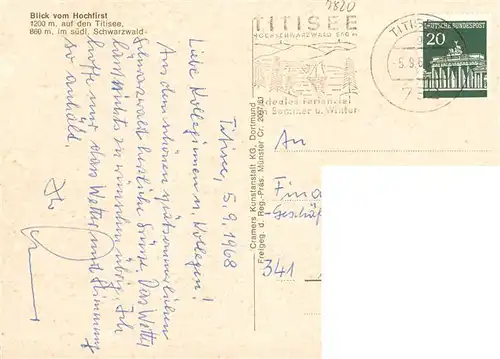 Blick vom Hochfirst
1200 m. auf den Titisee,
860 m. im südl. Schwarzwald
7820
TITISEE
HOCHSCHWARZWALD 860 m
Ideales Ferienziel
im Sommer u. Winter
TITISEE
5.9.68
DEUTSCHE BUNDESPOST
20
Titisee, 5.9.1968
Liebe Kolleginnen u. Kollegen!
Aus dem schönen spätsommerlichen
Schwarzwald herzliche Grüsse. Das Wetter
läßt nichts zu wünschen übrig. Ich
hoffe nur dass Wetter und Stimmung
so anhält.
Ihr
Cramers Kunstanstalt KG, Dortmund
Freigeg. d. Reg.-Präs. Münster Cr. 2097/63
An
Finan
Geschäf
341